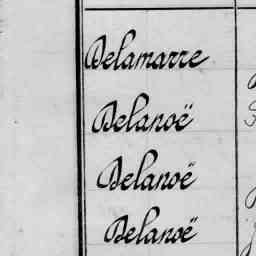 Delamarre
Delanoë
Delanoë
Delanoë